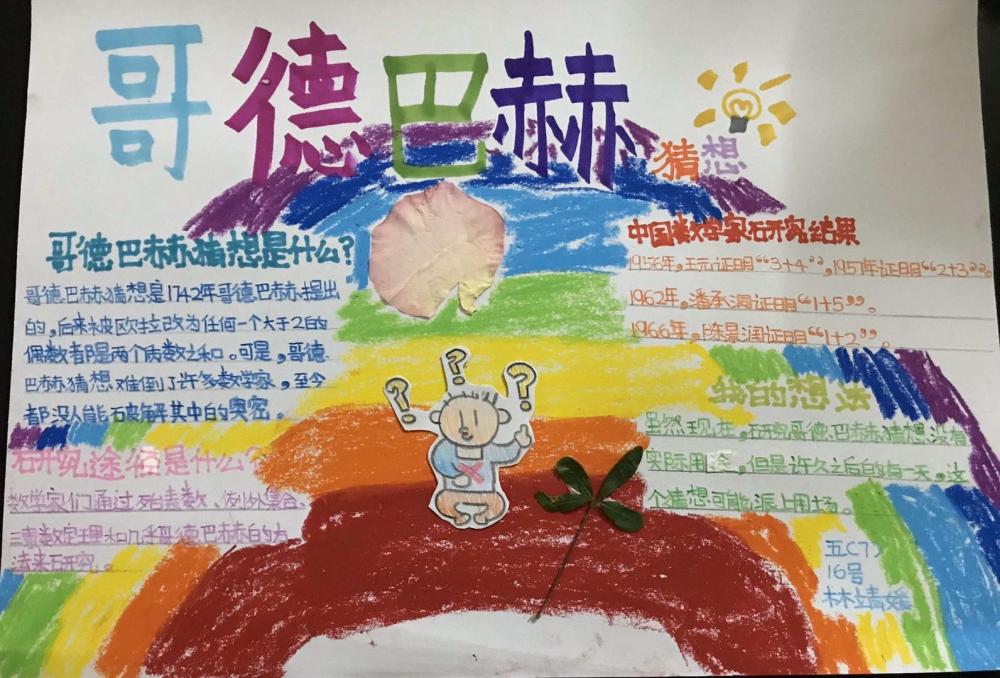 哥德巴赫
猜想
哥德巴赫猜想是什么?
哥德巴赫猜想是1742年哥德巴赫提出
的,后来被欧拉改为任何一个大于2的
偶数者阝是两个质数之和。可是,哥德
巴赫猜想难倒了许多数学家,至今
都没人能破解其中的奥密。
研究途径是什么?
数学家们通过殆素数、例外集合、
三素数定理和几乎哥德巴赫的方
法来研究。
中国数学家研究结果
1956年,王元证明“3+4”,1957年证明“2+3”。
1962年,潘承洞证明“1+5”。
1966年,陈景润证明“1+2”。
我的想法
虽然现在,研究哥德巴赫猜想没有
实际用途,但是许久之后的每一天,这
个猜想可能派上用场。
五(7)
16号
林靖媛